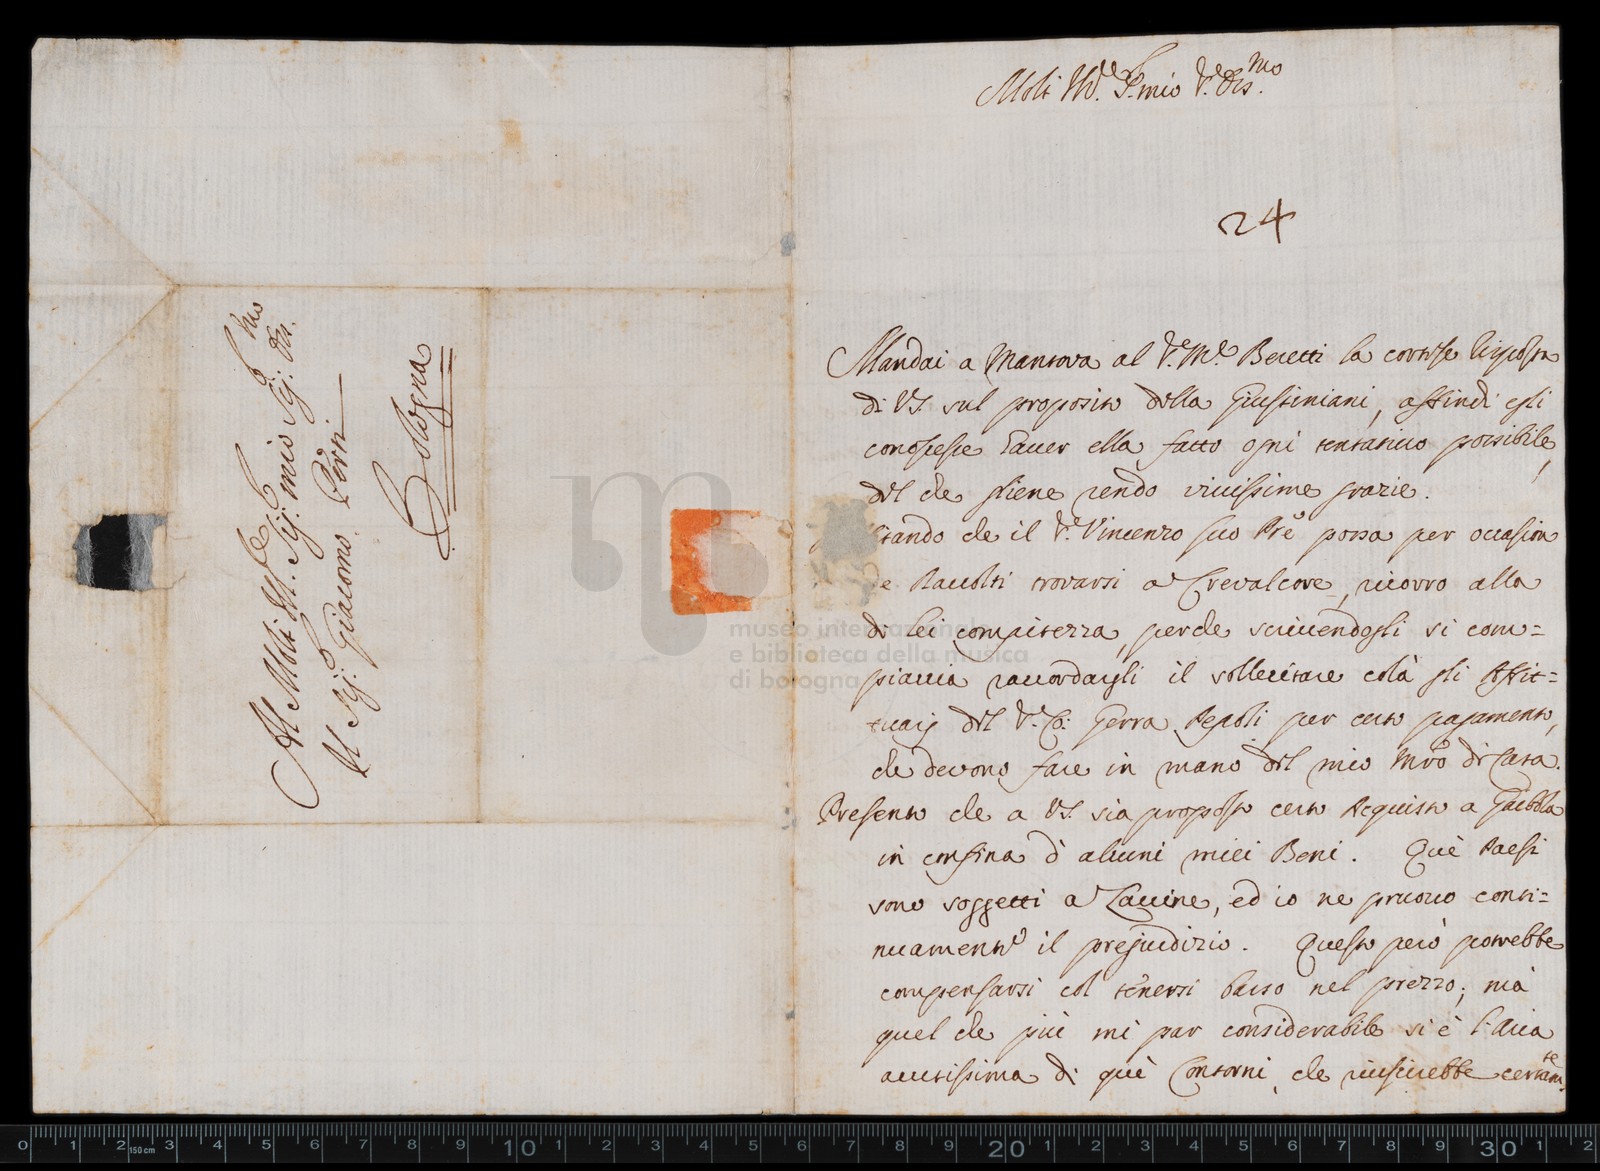 Al Molt Ill.re Sig.r mio Sig.r Oss.mo
Il Sig.r Giacomo Perti
Bologna
Molt Ill.re S.r mio S.r Oss.mo
24
Mandai a Mantova al S.r M.e Beretti la cortese risposta
di VS. sul proposito della Giustiniani, affinchè egli
conoscesse l'aver ella fatto ogni tentativo possibile,
del che gliene rendo vivissime grazie.
stando che il S.r Vincenzo suo Prē possa per occasion
e Raccolti trovarsi a Crevalcore, ricorro alla
di lei compitezza, perche scrivendogli si com=
piaccia raccordargli il sollecitare colà gli Affit=
tuarij del S.r Co: Pepoli per certo pagamento,
che devono fare in mano del mio Mrō di Casa.
Presento che a VS. sia proposto certo Acquisto a
in confina d alcuni miei Beni. Què Paesi
sono soggetti a ed io ne pruovo conti=
nuamente il prejudizio. Questo però potrebbe
compensarsi col tenersi basso nel prezzo; mà
quel che più mi par considerabile si è l'Aria
acutissima di què Contorni, che riuscirebbe certam.te
museo internazionale
e biblioteca della musica
di bologna
0 1 2 3 4 5 6 7 8 9 10 1 2 3 4 5 6 7 8 9 20 1 2 3 4 5 6 7 8 9 30 1 2
150 cm